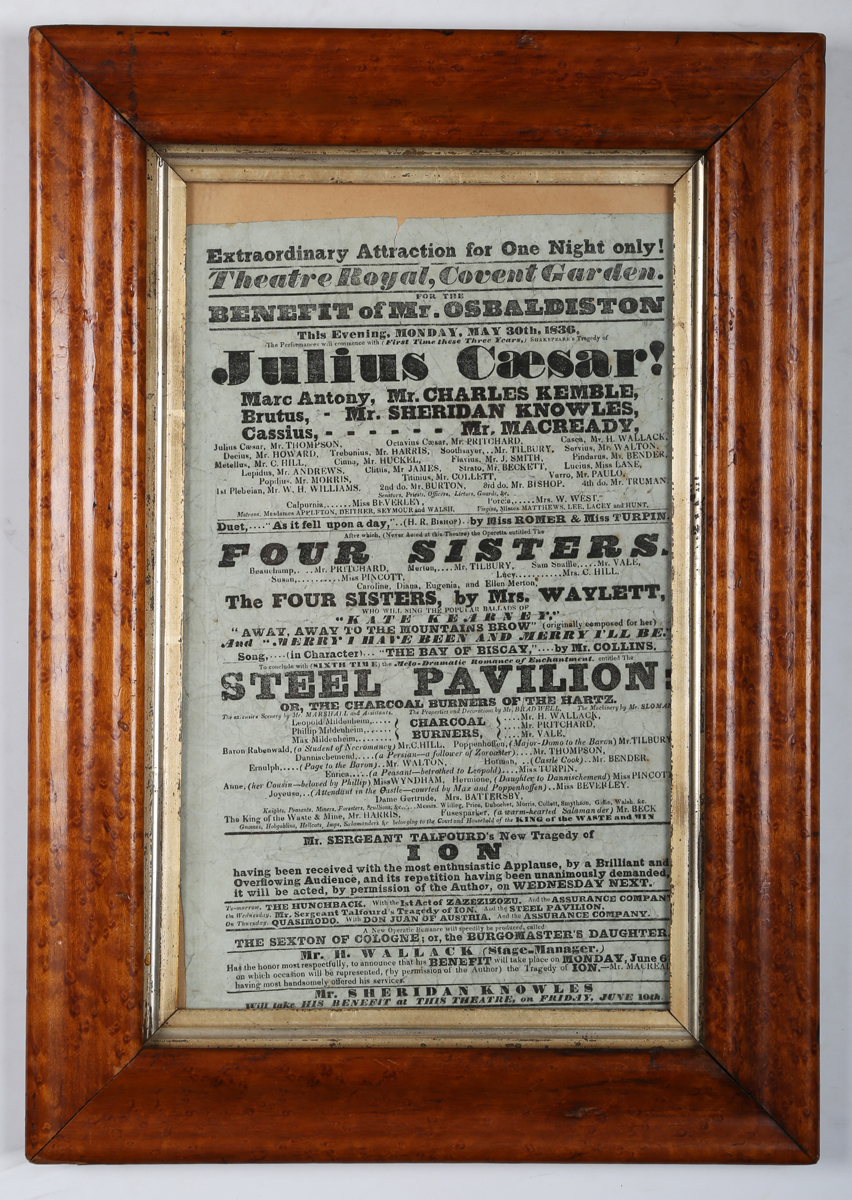 Extraordinary Attraction for One Night only!
Theatre Royal, Covent Garden.
FOR THE
BENEFIT of Mr. OSBALDISTON
This Evening, MONDAY, MAY 30th, 1836,
The Performances will commence with (First Time these Three Years,) SHAKSPEARE's Tragedy of
Julius Cæsar!
Marc Antony, Mr. CHARLES KEMBLE,
Brutus, - Mr. SHERIDAN KNOWLES,
Cassius, - - - - - - Mr. MACREADY,
Julius Cæsar, Mr. THOMPSON, Octavius Cæsar, Mr. PRITCHARD, Casca, Mr. H. WALLACK,
Decius, Mr. HOWARD, Trebonius, Mr. HARRIS, Soothsayer,...Mr. TILBURY, Servius, Mr. WALTON,
Metellus, Mr. C. HILL, Cinna, Mr. HUCKEL, Flavius, Mr. J. SMITH, Pindarus, Mr. BENDER,
Lepidus, Mr. ANDREWS, Clitus, Mr JAMES, Strato, Mr. BECKETT, Lucius, Miss LANE,
Popilius, Mr. MORRIS, Titinius, Mr. COLLETT, Varro, Mr. PAULO,
1st Plebeian, Mr. W. H. WILLIAMS, 2nd do. Mr. BURTON, 3rd do. Mr. BISHOP. 4th do. Mr. TRUMAN
Senators, Priests, Officers, Lictors, Guards, &c.
Calpurnia,.......Miss BEVERLEY, Porcia,.....Mrs. W. WEST.
Matrons, Mesdames APPLETON, DEITHER, SEYMOUR and WALSH. Virgins, Misses MATTHEWS, LEE, LACEY and HUNT.
Duet,...."As it fell upon a day,"..(H. R. Bishop)..by Miss ROMER & Miss TURPIN.
After which, (Never Acted at this Theatre) the Operetta entitled The
FOUR SISTERS.
Beauchamp,....Mr. PRITCHARD, Merton,....Mr. TILBURY, Sam Snaffle,....Mr. VALE,
Susan,...........Miss PINCOTT, Lucy,...........Mrs. C. HILL,
Caroline, Diana, Eugenia, and Ellen Merton,
The FOUR SISTERS, by Mrs. WAYLETT,
WHO WILL SING THE POPULAR BALLADS OF
"KATE KEARNEY,"
"AWAY, AWAY TO THE MOUNTAINS BROW" (originally composed for her)
And "MERRY I HAVE BEEN AND MERRY I'LL BE."
Song,....(in Character)... "THE BAY OF BISCAY,"....by Mr. COLLINS.
To conclude with (SIXTH TIME) the Melo-Dramatic Romance of Enchantment, entitled The
STEEL PAVILION:
OR, THE CHARCOAL BURNERS OF THE HARTZ.
The extensive Scenery by Mr. MARSHALL and Assistants. The Properties and Decorations by Mr. BRADWELL. The Machinery by Mr. SLOMAN
Leopold Mildenheim,..... { CHARCOAL } ....Mr. H. WALLACK,
Phillip Mildenheim,...... BURNERS, ....Mr. PRITCHARD,
Max Mildenheim,........ ....Mr. VALE,
Baron Rabenwald, (a Student of Necromancy) Mr. C. HILL, Poppenhoffen, (Major-Domo to the Baron) Mr. TILBURY
Dannischemend,....(a Persian—a follower of Zoroaster)....Mr. THOMPSON,
Ernulph,....(Page to the Baron)..Mr. WALTON, Hofman, ..(Castle Cook)..Mr. BENDER,
Eurica,....(a Peasant—betrothed to Leopold)....Miss TURPIN,
Anne, (her Cousin—beloved by Phillip) Miss WYNDHAM, Hermione, (Daughter to Dannischemend) Miss PINCOTT
Joyeuse,..(Attendant in the Castle—courted by Max and Poppenhoffen)..Miss BEVERLEY.
Dame Gertrude, Mrs. BATTERSBY,
Knights, Peasants, Miners, Foresters, Scullions, &c. Messrs. Willing, Price, Dubochet, Morris, Collett, Smythson, Walsh, &c.
The King of the Waste & Mine, Mr. HARRIS, Fusesparker, (a warm-hearted Salamander) Mr. BECK
Gnomes, Hobgoblins, Hellcats, Imps, Salamanders &c belonging to the Court and Household of the KING of the WASTE and MIN
Mr. SERGEANT TALFOURD's New Tragedy of
ION
having been received with the most enthusiastic Applause, by a Brilliant and
Overflowing Audience, and its repetition having been unanimously demanded,
it will be acted, by permission of the Author, on WEDNESDAY NEXT.
To-morrow, THE HUNCHBACK. With the 1st Act of ZAZEZIZOZU. And the ASSURANCE COMPANY
On Wednesday, Mr. Sergeant Talfourd's Tragedy of ION. And the STEEL PAVILION.
On Thursday, QUASIMODO. With DON JUAN OF AUSTRIA. And the ASSURANCE COMPANY.
A New Operatic Romance will speedily be produced, called
THE SEXTON OF COLOGNE; or, the BURGOMASTER'S DAUGHTER
Mr. H. WALLACK (Stage-Manager.)
Has the honor most respectfully, to announce that his BENEFIT will take place on MONDAY, June 6
on which occasion will be represented, (by permission of the Author) the Tragedy of ION.—Mr. MACREAD
having most handsomely offered his services.
Mr. SHERIDAN KNOWLES
Will take HIS BENEFIT at THIS THEATRE, on FRIDAY, JUNE 10th.